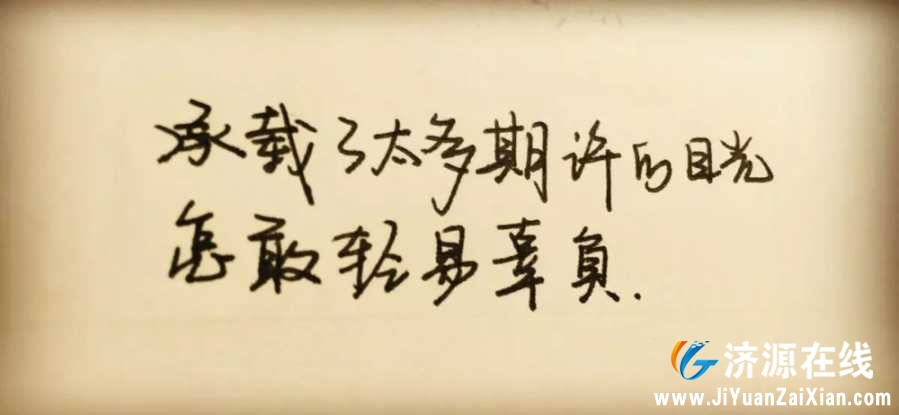 承载了太多期许的目光
怎敢轻易辜负.
济源在线
www.JiYuanZaiXian.com